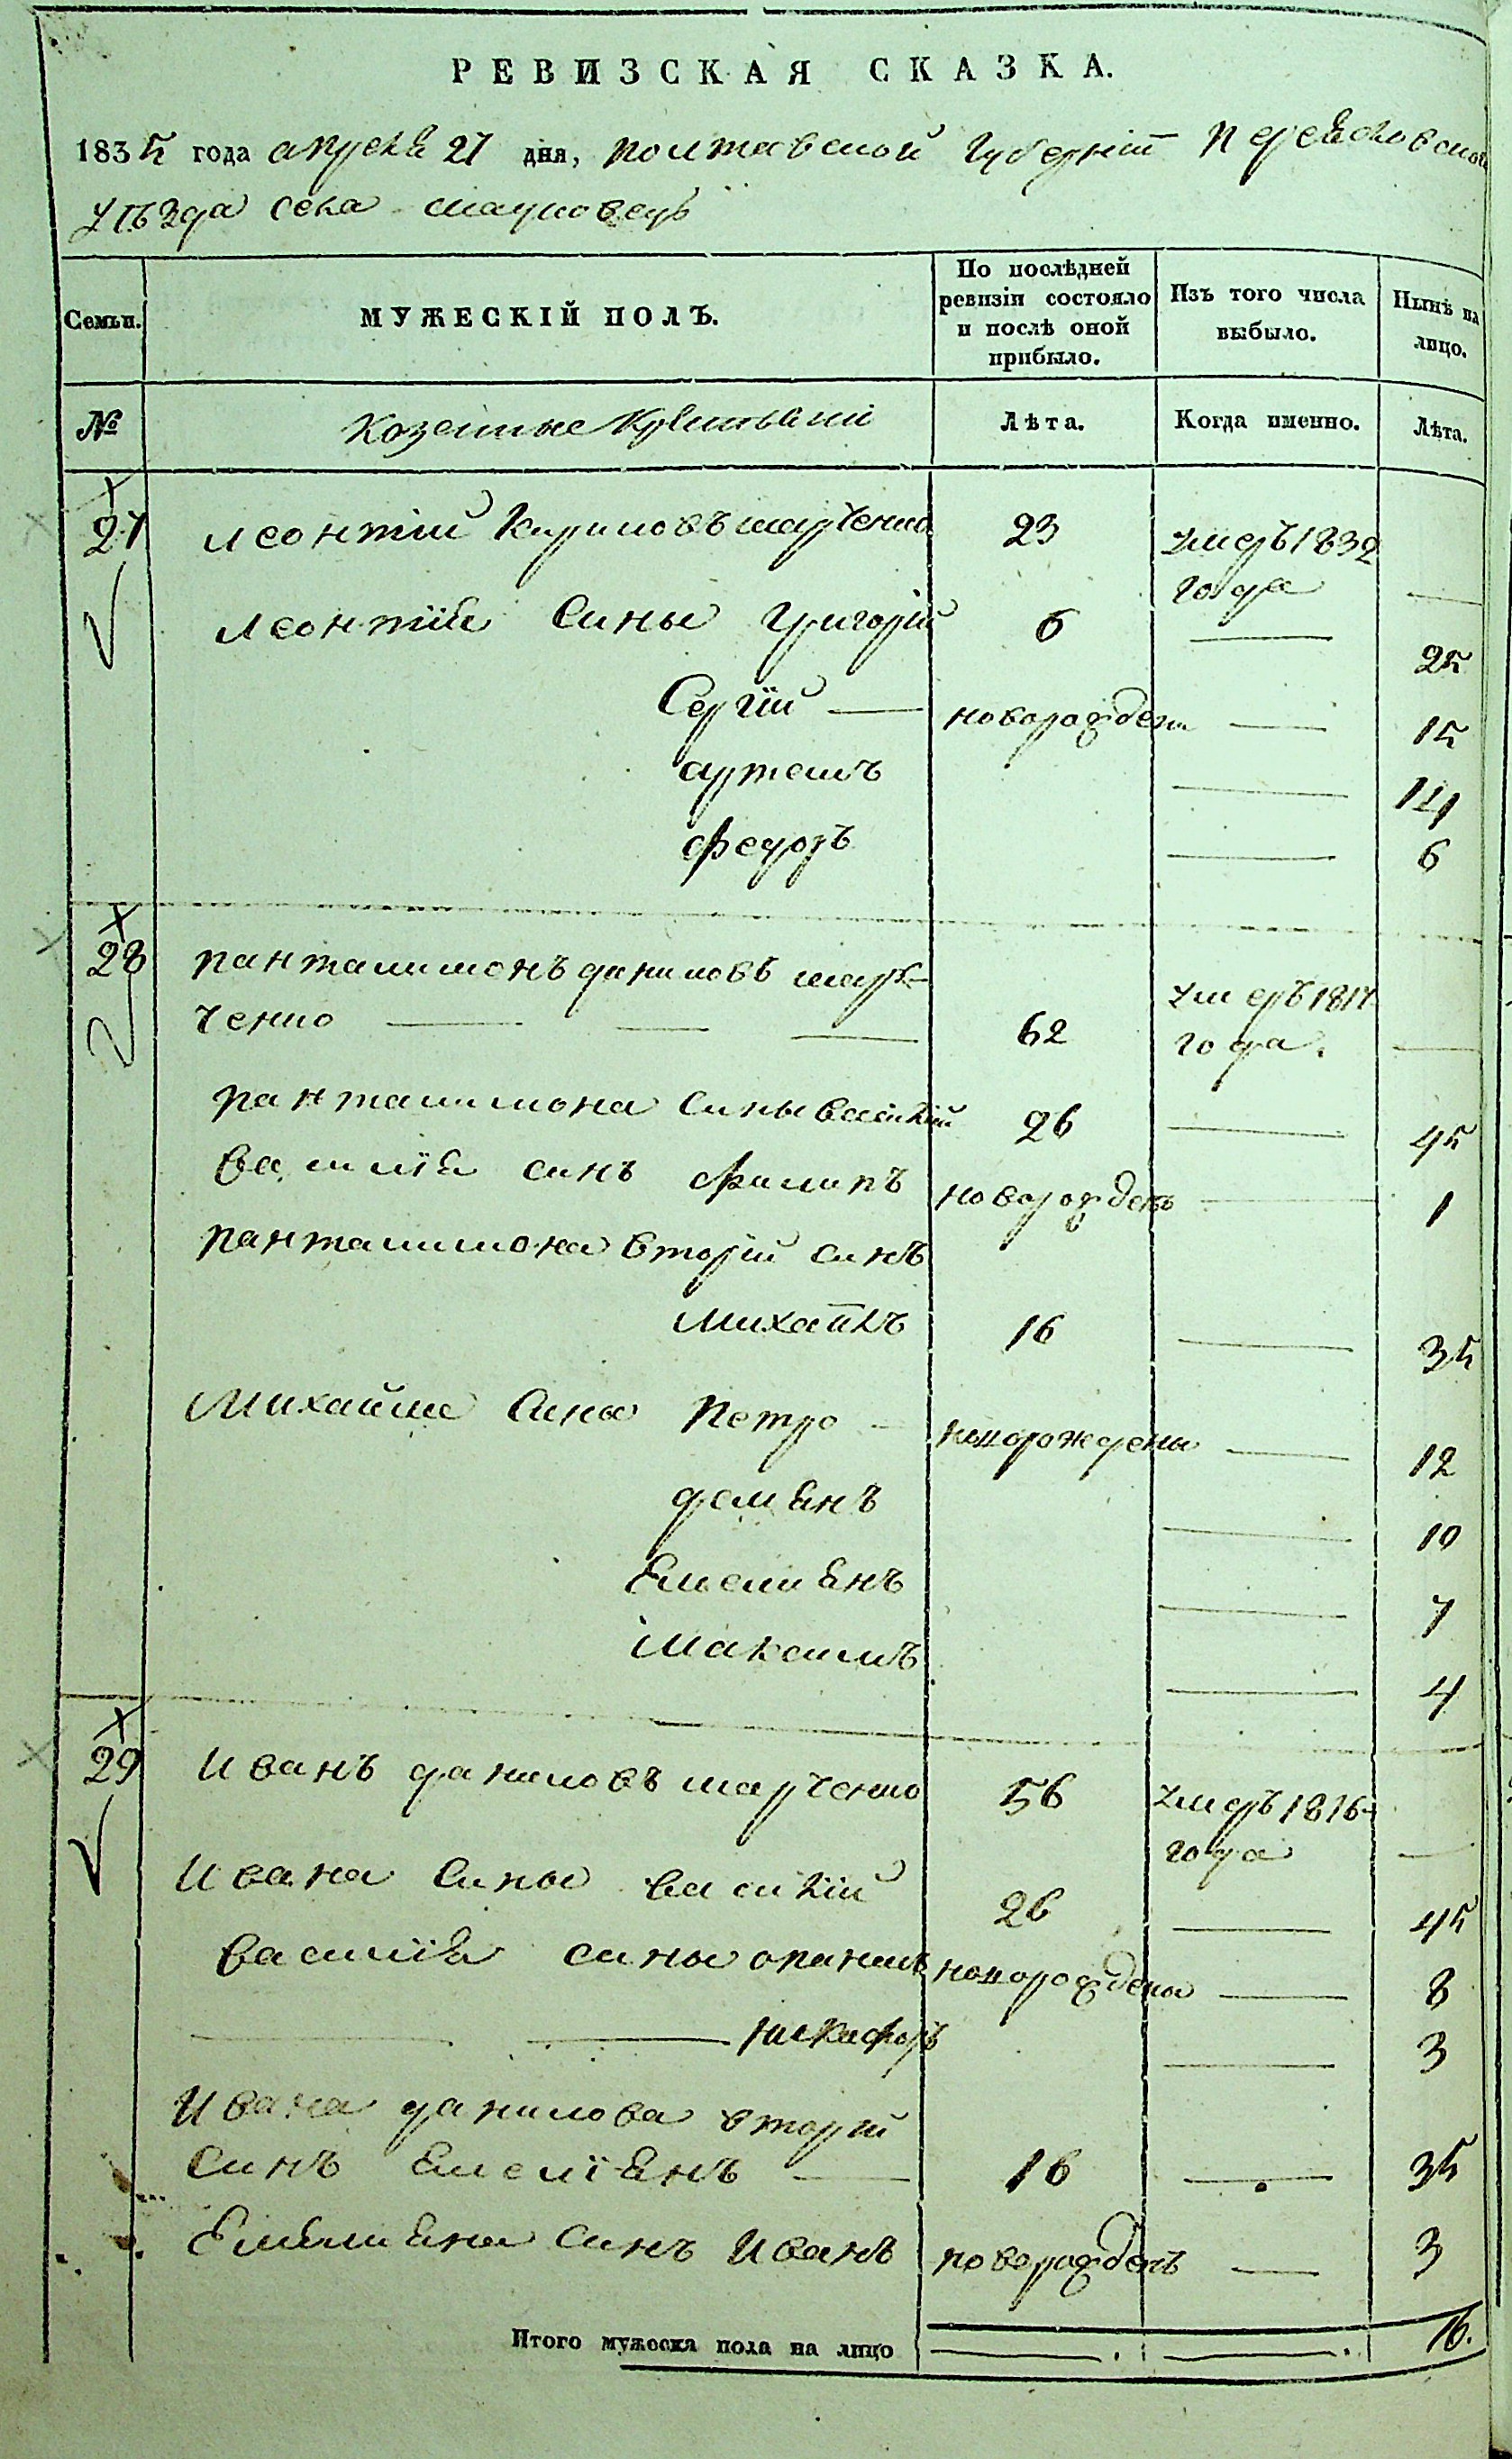 РЕВИЗСКАЯ СКАЗКА.
1835 года апреля 27 дня, полтавской Губернїи Переясловскаго
уѣзда села
Семьи. МУЖЕСКІЙ ПОЛЪ. По послѣдней ревизіи состояло и послѣ оной прибыло. Изъ того числа выбыло. Нынѣ на лицо.
№ Козенные Лѣта. Когда именно. Лѣта.
27 леонтїй Кириловъ марченко 23 умеръ 1832
года —
леонтїя сины григорїй 6 — 25
Сергїй — новорождени — 15
артемъ — 14
федоръ — 6
28 панталимонъ даниловъ мар-
ченко — 62 умеръ 1817
года. —
панталимона сины василїй 26 — 45
василїя синъ филипъ новорожденъ — 1
панталимона вторїй синъ
михаилъ 16 — 35
Михайла сины петро — новорождены — 12
демянъ — 10
Емелиянъ — 7
максимъ — 4
29 иванъ даниловъ марченко 56 умеръ 1816
года —
ивана сины василїй 26 — 45
василїя сины новорождены — 8
— никифоръ — 3
ивана данилова вторїй
синъ Емелїянъ — 16 — 35
Емелияна синъ иванъ новорожденъ — 3
Итого мужеска пола на лицо — — 16.